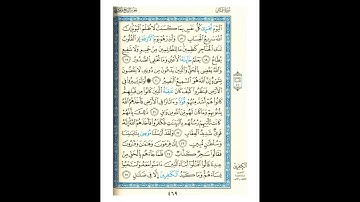 سورة غافر
ٱلۡيَوۡمَ تُجۡزَىٰ كُلُّ نَفۡسِۭ بِمَا كَسَبَتۡۚ لَا ظُلۡمَ ٱلۡيَوۡمَۚ إِنَّ
ٱللَّهَ سَرِيعُ ٱلۡحِسَابِ ١٧ وَأَنذِرۡهُمۡ يَوۡمَ ٱلۡأٓزِفَةِ إِذِ ٱلۡقُلُوبُ
لَدَى ٱلۡحَنَاجِرِ كَٰظِمِينَۚ مَا لِلظَّٰلِمِينَ مِنۡ حَمِيمٖ وَلَا شَفِيعٖ
يُطَاعُ ١٨ يَعۡلَمُ خَآئِنَةَ ٱلۡأَعۡيُنِ وَمَا تُخۡفِي ٱلصُّدُورُ ١٩
وَٱللَّهُ يَقۡضِي بِٱلۡحَقِّۖ وَٱلَّذِينَ يَدۡعُونَ مِن دُونِهِۦ لَا يَقۡضُونَ
بِشَيۡءٍۗ إِنَّ ٱللَّهَ هُوَ ٱلسَّمِيعُ ٱلۡبَصِيرُ ٢٠ ۞ أَوَلَمۡ يَسِيرُواْ فِي
ٱلۡأَرۡضِ فَيَنظُرُواْ كَيۡفَ كَانَ عَٰقِبَةُ ٱلَّذِينَ كَانُواْ مِن قَبۡلِهِمۡۚ
كَانُواْ هُمۡ أَشَدَّ مِنۡهُمۡ قُوَّةٗ وَءَاثَارٗا فِي ٱلۡأَرۡضِ فَأَخَذَهُمُ
ٱللَّهُ بِذُنُوبِهِمۡ وَمَا كَانَ لَهُم مِّنَ ٱللَّهِ مِن وَاقٖ ٢١ ذَٰلِكَ
بِأَنَّهُمۡ كَانَت تَّأۡتِيهِمۡ رُسُلُهُم بِٱلۡبَيِّنَٰتِ فَكَفَرُواْ فَأَخَذَهُمُ ٱللَّهُۚ إِنَّهُۥ
قَوِيّٞ شَدِيدُ ٱلۡعِقَابِ ٢٢ وَلَقَدۡ أَرۡسَلۡنَا مُوسَىٰ بِـَٔايَٰتِنَا
وَسُلۡطَٰنٖ مُّبِينٍ ٢٣ إِلَىٰ فِرۡعَوۡنَ وَهَٰمَٰنَ وَقَٰرُونَ
فَقَالُواْ سَٰحِرٞ كَذَّابٞ ٢٤ فَلَمَّا جَآءَهُم بِٱلۡحَقِّ مِنۡ
عِندِنَا قَالُواْ ٱقۡتُلُوٓاْ أَبۡنَآءَ ٱلَّذِينَ ءَامَنُواْ مَعَهُۥ وَٱسۡتَحۡيُواْ
نِسَآءَهُمۡۚ وَمَا كَيۡدُ ٱلۡكَٰفِرِينَ إِلَّا فِي ضَلَٰلٖ ٢٥
٤٦٩